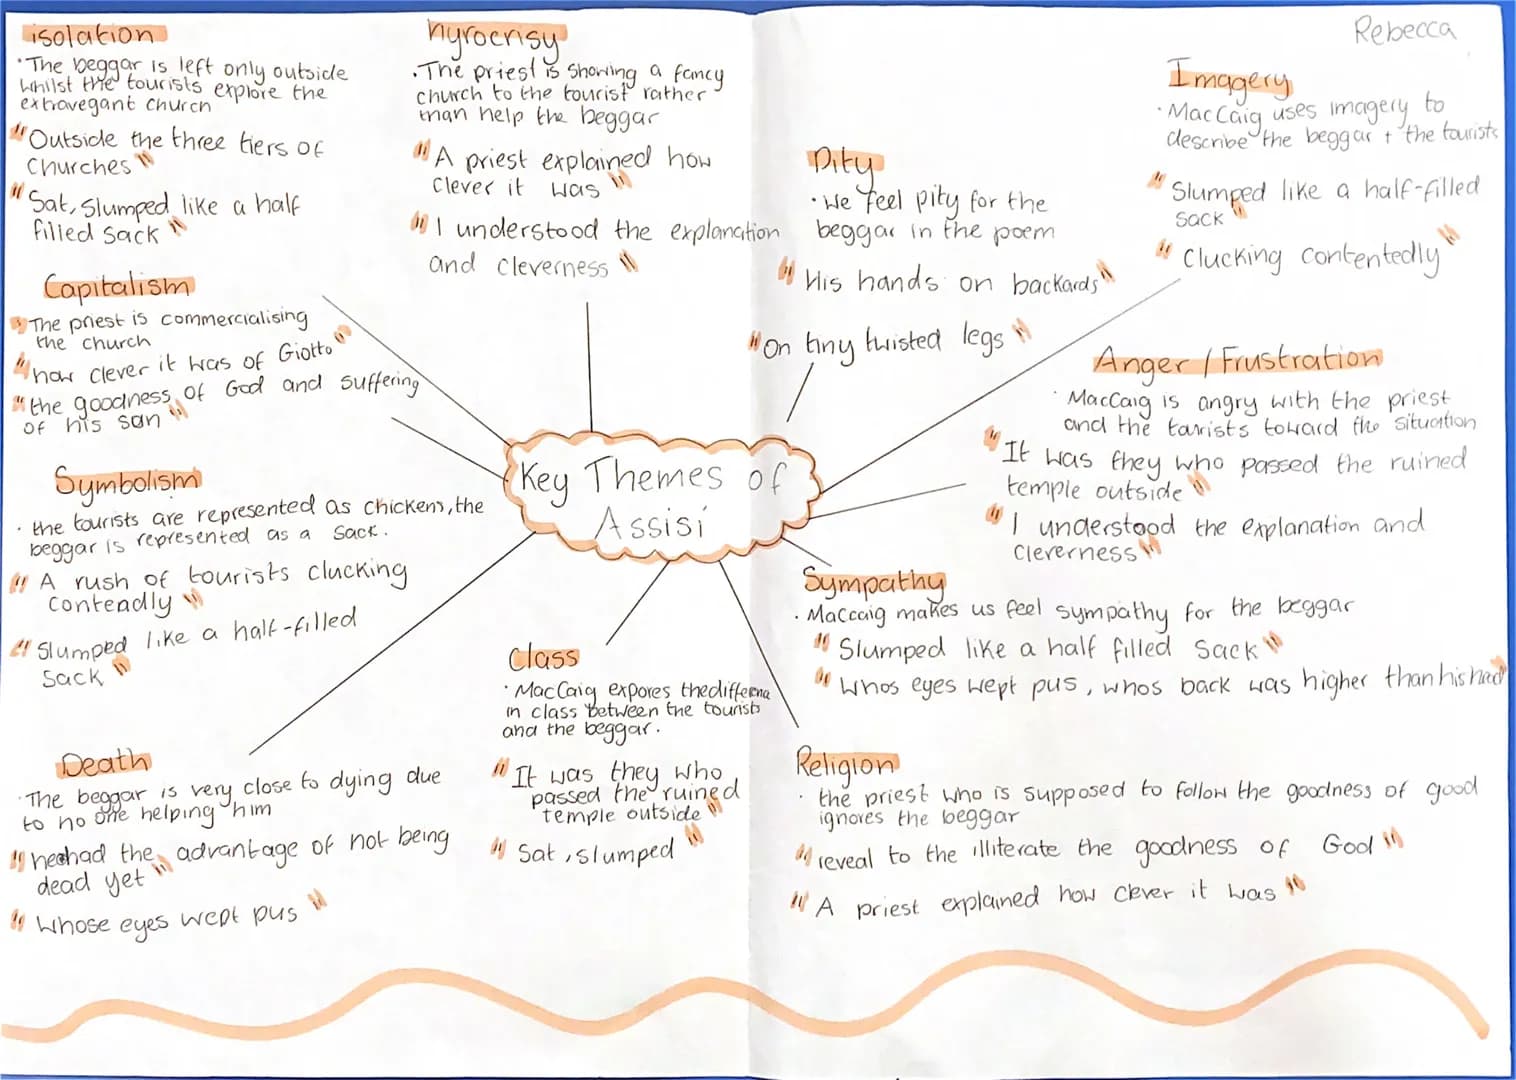 Rebecca
isolation
· The beggar is left only outside
whilst the tourists explore the
extravegant church
"Outside the three tiers of
churches"
"Sat, slumped like a half
filled sack"
hyrocrisy
· The priest is showing a fancy
church to the tourist rather
than help the beggar
"A priest explained how
clever it was"
"I understood the explanation
and cleverness"
Pity
· we feel pity for the
beggar in the poem
"His hands on backards"
"On tiny twisted legs"
Imagery
· MacCaig uses imagery to
describe the beggar + the tourists
"Slumped like a half-filled
sack"
"Clucking contentedly"
Capitalism
· The priest is commercialising
the church
"how clever it was of Giotto"
"the goodness of God and suffering
of his son"
Anger / Frustration
· MacCaig is angry with the priest
and the tourists toward the situation
"It was they who passed the ruined
temple outside"
"I understood the explanation and
cleverness"
Key Themes of
Assisi
Symbolism
· the tourists are represented as chickens, the
beggar is represented as a sack.
"A rush of tourists clucking
conteadly"
"Slumped like a half-filled
sack"
Sympathy
· Maccaig makes us feel sympathy for the beggar
"Slumped like a half filled sack"
"whos eyes wept pus, whos back was higher than his head"
Class
· MacCaig expores the
in class between the tourists
and the beggar.
"It was they who
passed the ruined
temple outside"
"Sat, slumped"
Death
· The beggar is very close to dying due
to no one helping him
had the advantage of not being
dead yet"
"whose eyes wept pus"
Religion
· the priest who is supposed to follow the goodness of good
ignores the beggar
"reveal to the illiterate the goodness of God"
"A priest explained how clever it was"